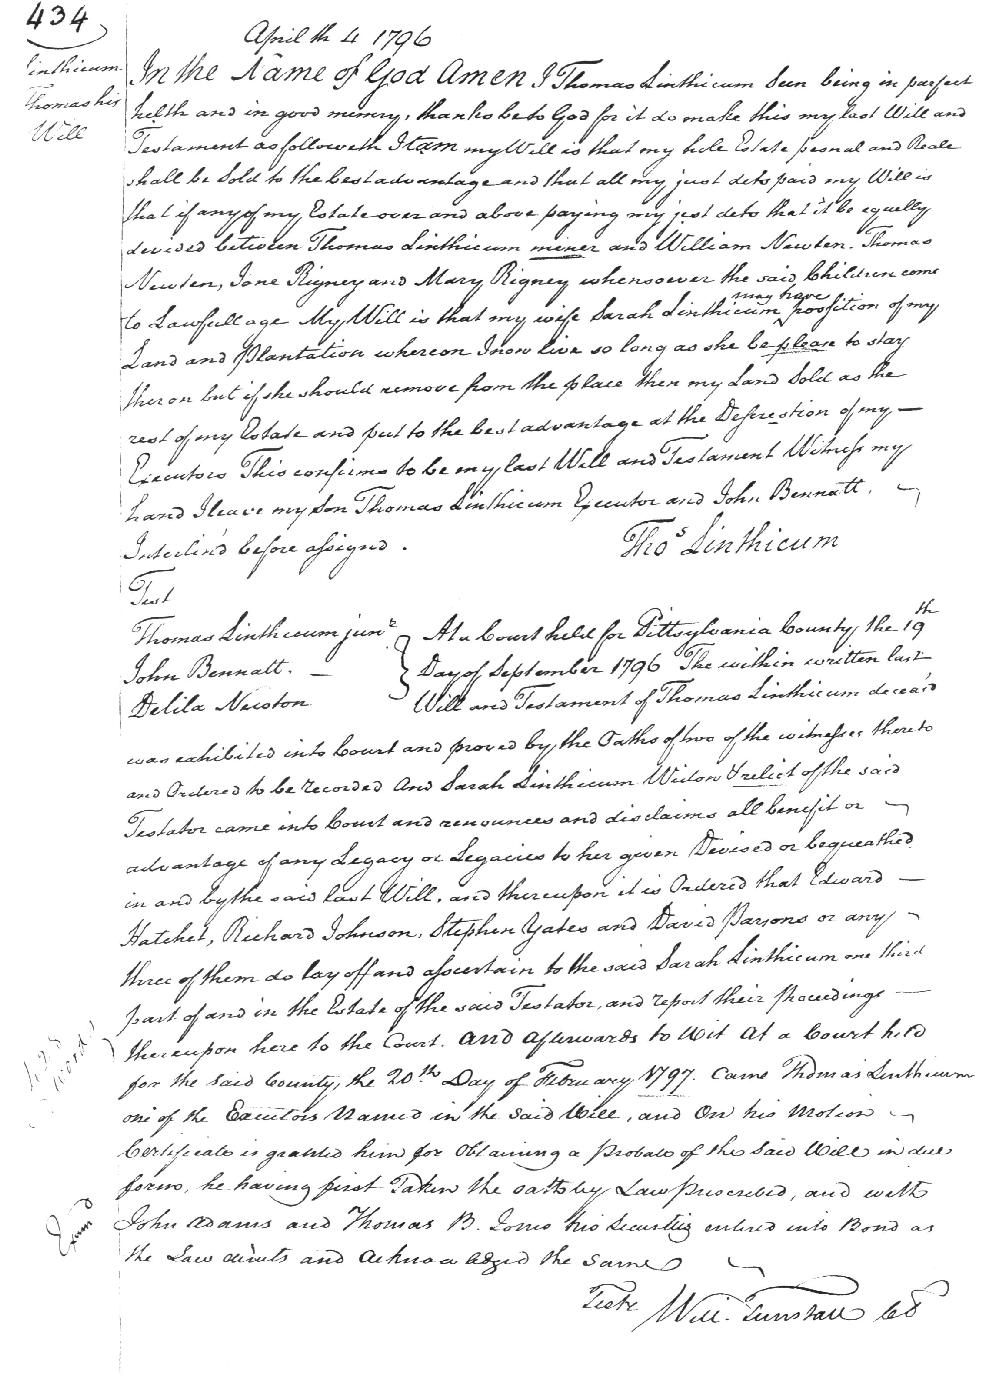 434
April th 4 1796
Linthicum
Thomas his
Will
In the Name of God Amen I Thomas Linthicum Seen being in parfect
helth and in good memry, thanks be to God for it do make this my last Will and
Testament as followeth Itam my Will is that my hole Estate pesnal and Reale
shall be Sold to the best advantage and that all my just dets paid my Will is
that if any of my Estate over and above paying my just dets that it be equelly
devided between Thomas Linthicum miner and William Newten. Thomas
Newten, Jane Rigney and Mary Rigney whensoever the said Children come
to Lawfull age My Will is that my wife Sarah Linthicum may have possition of my
Land and Plantation whereon I now live so long as she be plean to stay
theron but if she should remove from the place then my Land Sold as the
rest of my Estate and put to the best advantage at the Desrestion of my —
Executors This confirms to be my last Will and Testament Witness my
hand I leave my son Thomas Linthicum Executor and John Bennatt.
Interlin'd before assigned.
Thos Linthicum
Test
Thomas Linthicum junr
John Bennatt. —
Delila Newton
At a Court held for Pittsylvania County the 19th
Day of September 1796 The within written last
Will and Testament of Thomas Linthicum deceas'd
was exhibited into Court and proved by the Oaths of two of the witnesses thereto
and Ordered to be recorded And Sarah Linthicum Widow & relict of the said
Testator came into Court and renounces and disclaims all benefit or
advantage of any Legacy or Legacies to her given Devised or bequeathed
in and by the said last Will, and thereupon it is Ordered that Edward —
Hatchet, Richard Johnson, Stephen Yates and David Parsons or any
three of them do lay off and assertain to the said Sarah Linthicum one third
part of and in the Estate of the said Testator, and report their Proceedings —
thereupon here to the Court. And afterwards to Wit At a Court held
for the said County, the 20th Day of February 1797. Came Thomas Linthicum
one of the Executors Named in the said Will, and On his Motion
Certificate is granted him for Obtaining a Probate of the said Will in due
form, he having first Taken the oath by Law Prescribed, and with
John Adams and Thomas B. Jones his Securities entered into Bond as
the Law directs and acknowledged the same
Exmd
Teste Will. Tunstall CC